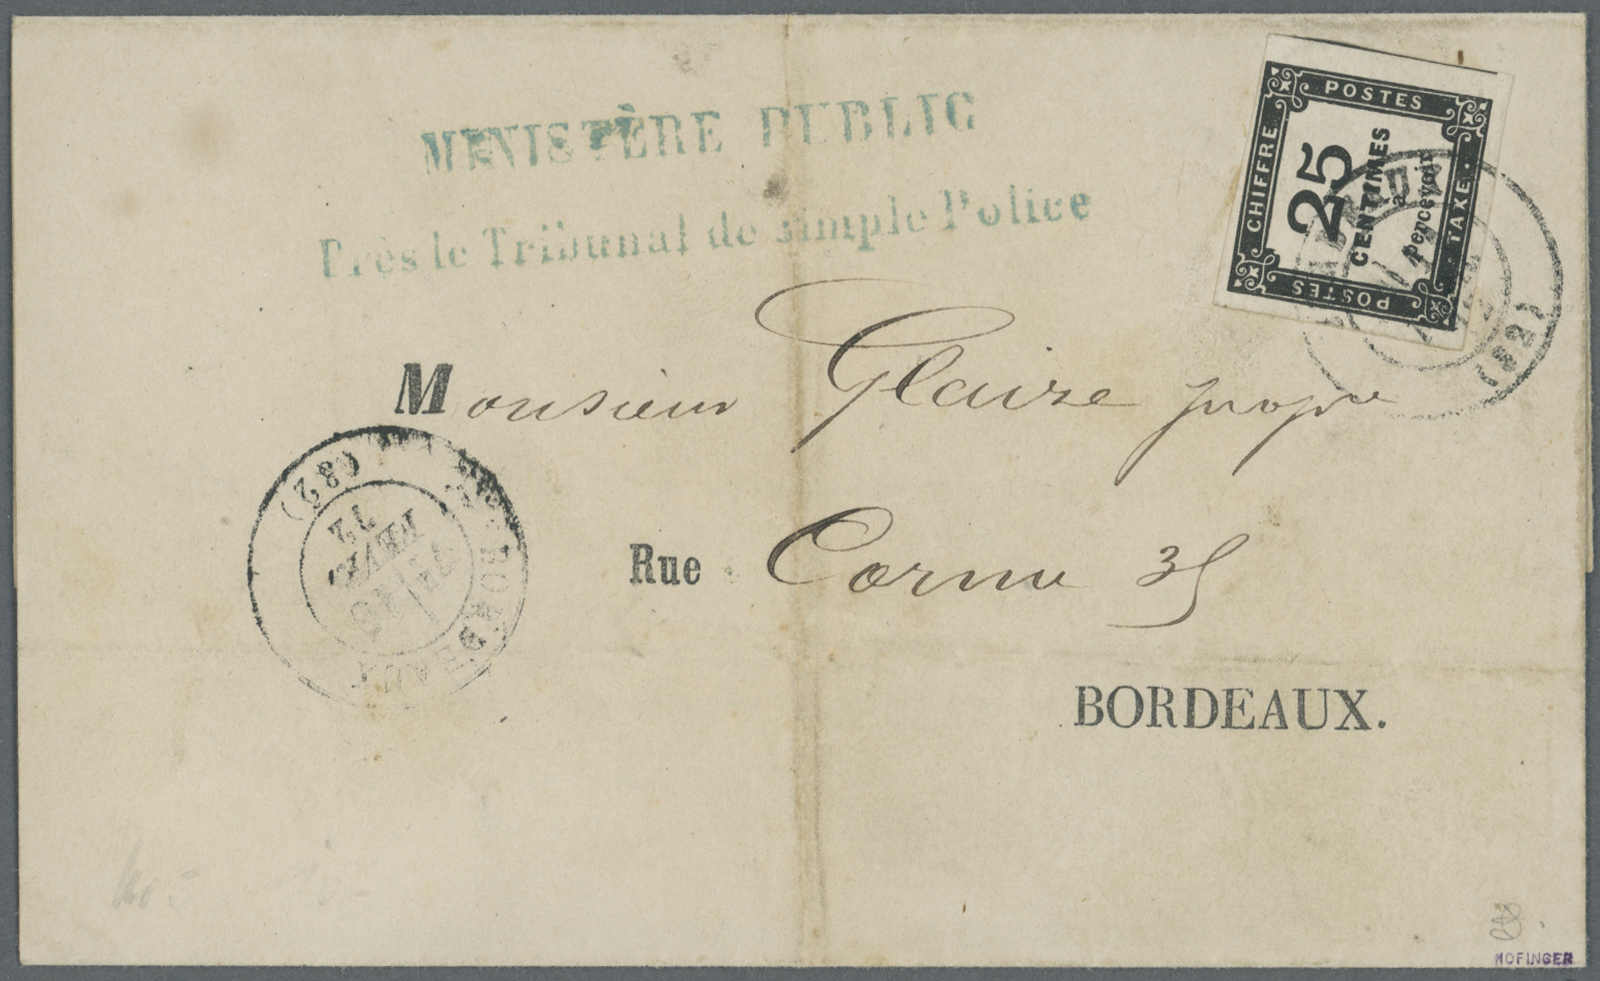 MINISTÈRE PUBLIC
Près le Tribunal de simple Police
POSTES
CHIFFRE
25
CENTIMES
à
percevoir
TAXE.
POSTES
(32)
Monsieur Glaire propre
(32)
BORDEAUX
FEVR.
Rue Cornu 35
BORDEAUX.
MOFINGER